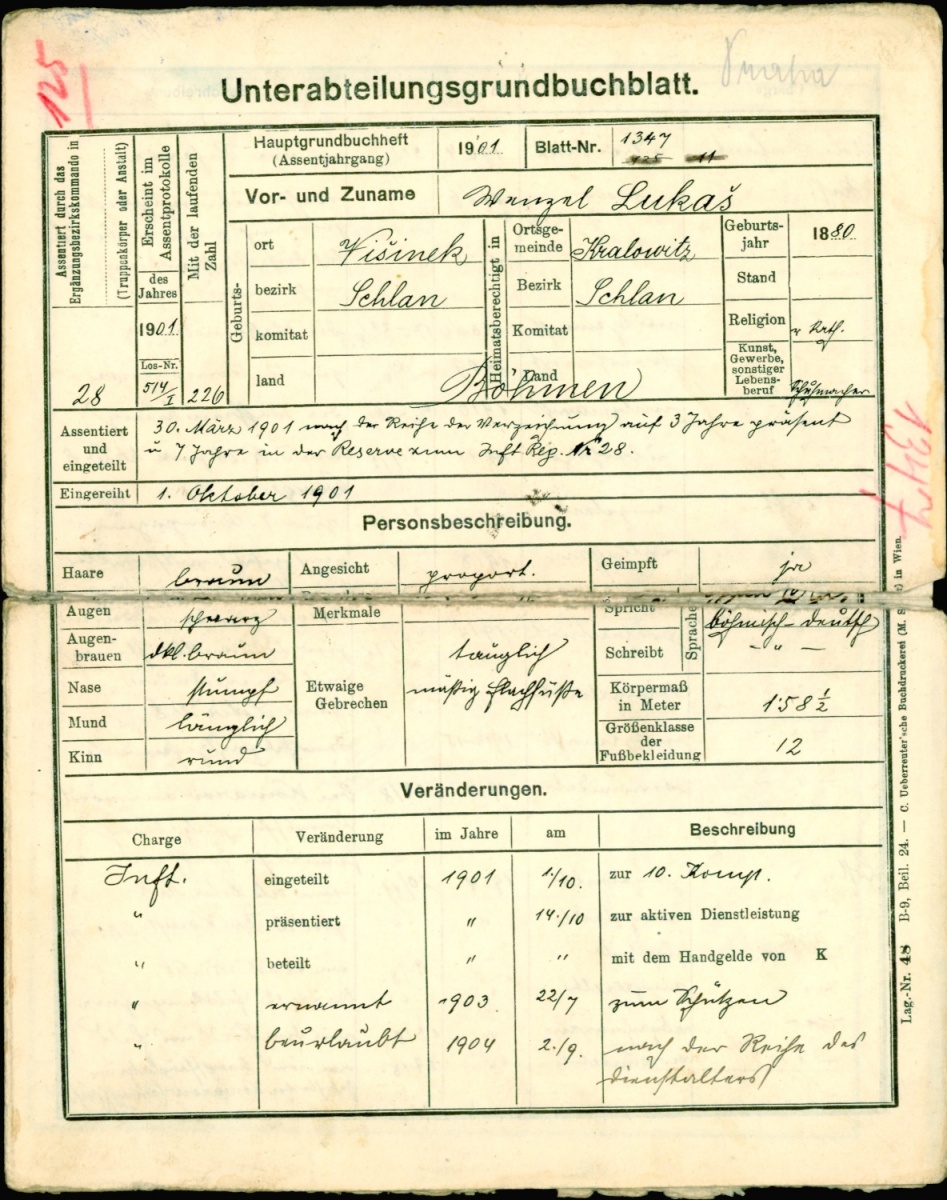 125
Praha
Unterabteilungsgrundbuchblatt.
Assentiert durch das
Ergänzungsbezirkskommando in
(Truppenkörper oder Anstalt)
28
Erscheint im
Assentprotokolle
des
Jahres
1901
Los-Nr.
514/I
Mit der laufenden
Zahl
226
Hauptgrundbuchheft
(Assentjahrgang)
1901
Blatt-Nr.
1347
125 11
Vor- und Zuname
Wenzel Lukaš
Geburts-
ort Višinek
bezirk Schlan
komitat
land
Heimatsberechtigt in
Ortsge-
meinde Kralowitz
Bezirk Schlan
Komitat
Land
Böhmen
Geburts-
jahr 1880
Stand
Religion r. kath.
Kunst,
Gewerbe,
sonstiger
Lebens-
beruf Schuhmacher
Assentiert
und
eingeteilt
30. März 1901 nach der Reihe der Verzeichnung auf 3 Jahre präsent
u 7 Jahre in der Reserve zum Inft Reg. Nr 28.
Eingereiht 1. Oktober 1901
1347
Personsbeschreibung.
Haare braun
Angesicht proport.
Geimpft ja
Augen schwarz
Merkmale
Spricht
Sprache
böhmisch-deutsch
Augen-
brauen dkl. braun
Schreibt - " -
Nase stumpf
Etwaige
Gebrechen
tauglich
mäßig Flachfüße
Körpermaß
in Meter 1·58 ½
Mund länglich
Größenklasse
der
Fußbekleidung 12
Kinn rund
Veränderungen.
Charge Veränderung im Jahre am Beschreibung
Inft. eingeteilt 1901 1/10. zur 10. Komp.
" präsentiert " 14./10 zur aktiven Dienstleistung
" beteilt " " mit dem Handgelde von K
" ernannt 1903 22/7 zum Schützen
" beurlaubt 1904 2./9. nach der Reihe des
Dienstalters
Lag.-Nr. 48 B-9, Beil. 24. — C. Ueberreuter'sche Buchdruckerei (M. in Wien.